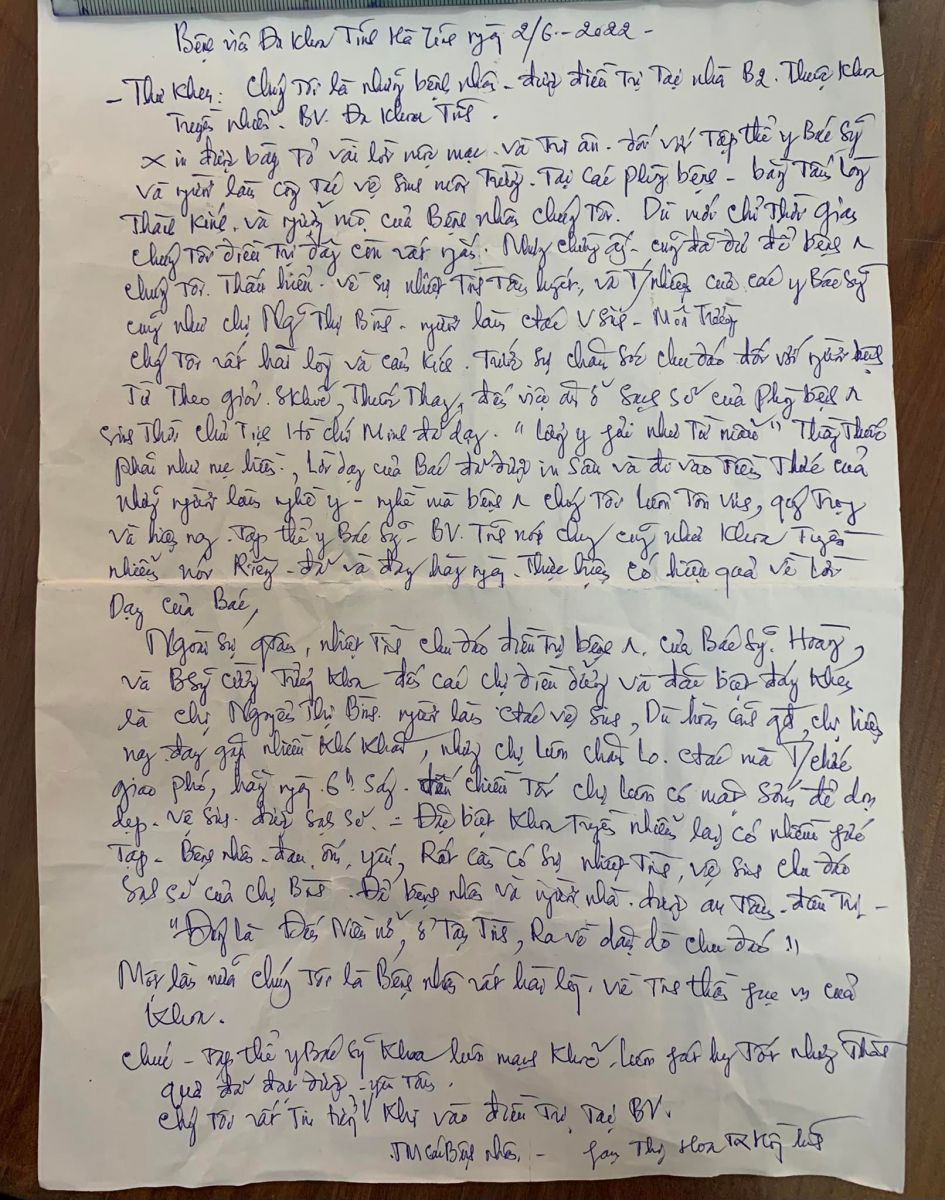 Bệnh viện Đa Khoa Tỉnh Hà Tĩnh ngày 2/6-2022-
- Thư Khen: Chúng Tôi là những bệnh nhân - được điều Trị Tại nhà B2. Thuộc Khoa
Truyền nhiễm. BV. Đa Khoa Tỉnh.
Xin được bày Tỏ vài lời mộc mạc và Tri ân - đối với Tập thể y Bác Sỹ
và người làm công Tác vệ Sinh môi Trường. Tại các phòng bệnh - bằng Tấm lòng
Thành Kính và ngưỡng mộ của Bệnh nhân chúng Tôi. Dù mới chỉ Thời gian
chúng Tôi điều Trị ở đây còn rất ngắn. Nhưng chừng ấy - cũng đã đủ để bệnh n
chúng Tôi. Thấu hiểu - về Sự nhiệt Tình Tâm huyết, và T/nhiệm của các y Bác Sỹ
cũng như chị Ngô Thị Bình - người làm ctác VSinh - Môi Trường
Chúng Tôi rất hài lòng và cảm Kích. Trước Sự chăm Sóc chu đáo đối với người bệnh
Từ Theo giỏi. SKhoẻ, Thuốc Thay, đến việc ăn ở Sạch Sẽ của phòng bệnh n
Sinh Thời chủ Tịch Hồ chí Minh đã dạy. "Lương y phải như Từ mẫu" Thầy Thuốc
phải như mẹ hiền, Lời dạy của Bác đã được in Sâu và đi vào Tiềm Thức của
những người làm nghề y - nghề mà bệnh n chúng Tôi Luôn Tôn Vinh, quý Trọng
và hiện nay. Tập thể y Bác Sỹ - BV. Tỉnh nói chung cũng như Khoa Truyền
nhiễm nói Riêng - đã và đang hàng ngày. Thực hiện có hiệu quả về Lời
Dạy của Bác,
Ngoài Sự quan, nhiệt Tình chu đáo điều Trị bệnh n. của Bác Sỹ. Hoàng,
và BSỹ Trưởng Khoa đến các chị điều dưỡng và đặc biệt đáng Khen
là chị Nguyễn Thị Bình. người làm ctác vệ Sinh, Dù hoàn cảnh gđ, chị hiện
nay đang gặp nhiều Khó Khăn, nhưng chị Luôn chăm Lo. ctác mà T/chức
giao phó, hằng ngày 6h Sáng. đến chiều Tối chị luôn có mặt Sớm để dọn
dẹp. vệ Sinh. được Sạch Sẽ. - Đặc biệt Khoa Truyền nhiễm lại có nhiều
Tạp - Bệnh nhân - đau, ốm, yếu, Rất cần có Sự nhiệt Tình, vệ Sinh chu đáo
Sạch Sẽ của chị Bình. Để bệnh nhân và người nhà - được an Tâm - điều Trị -
"Đúng là Đến Niềm nở, ở Tận Tình, Ra về dặn dò chu đáo"
Một lần nữa chúng Tôi là Bệnh nhân rất hài lòng. về Tinh thần phục vụ của
Khoa.
Chúc - Tập thể y Bác Sỹ Khoa luôn mạnh Khoẻ, luôn phát huy Tốt những Thành
quả đã đạt được
Chúng Tôi rất Tin tưởng Khi vào điều Trị Tại BV.
TM các Bệnh nhân. - Thị Hoa TX Hồng Lĩnh